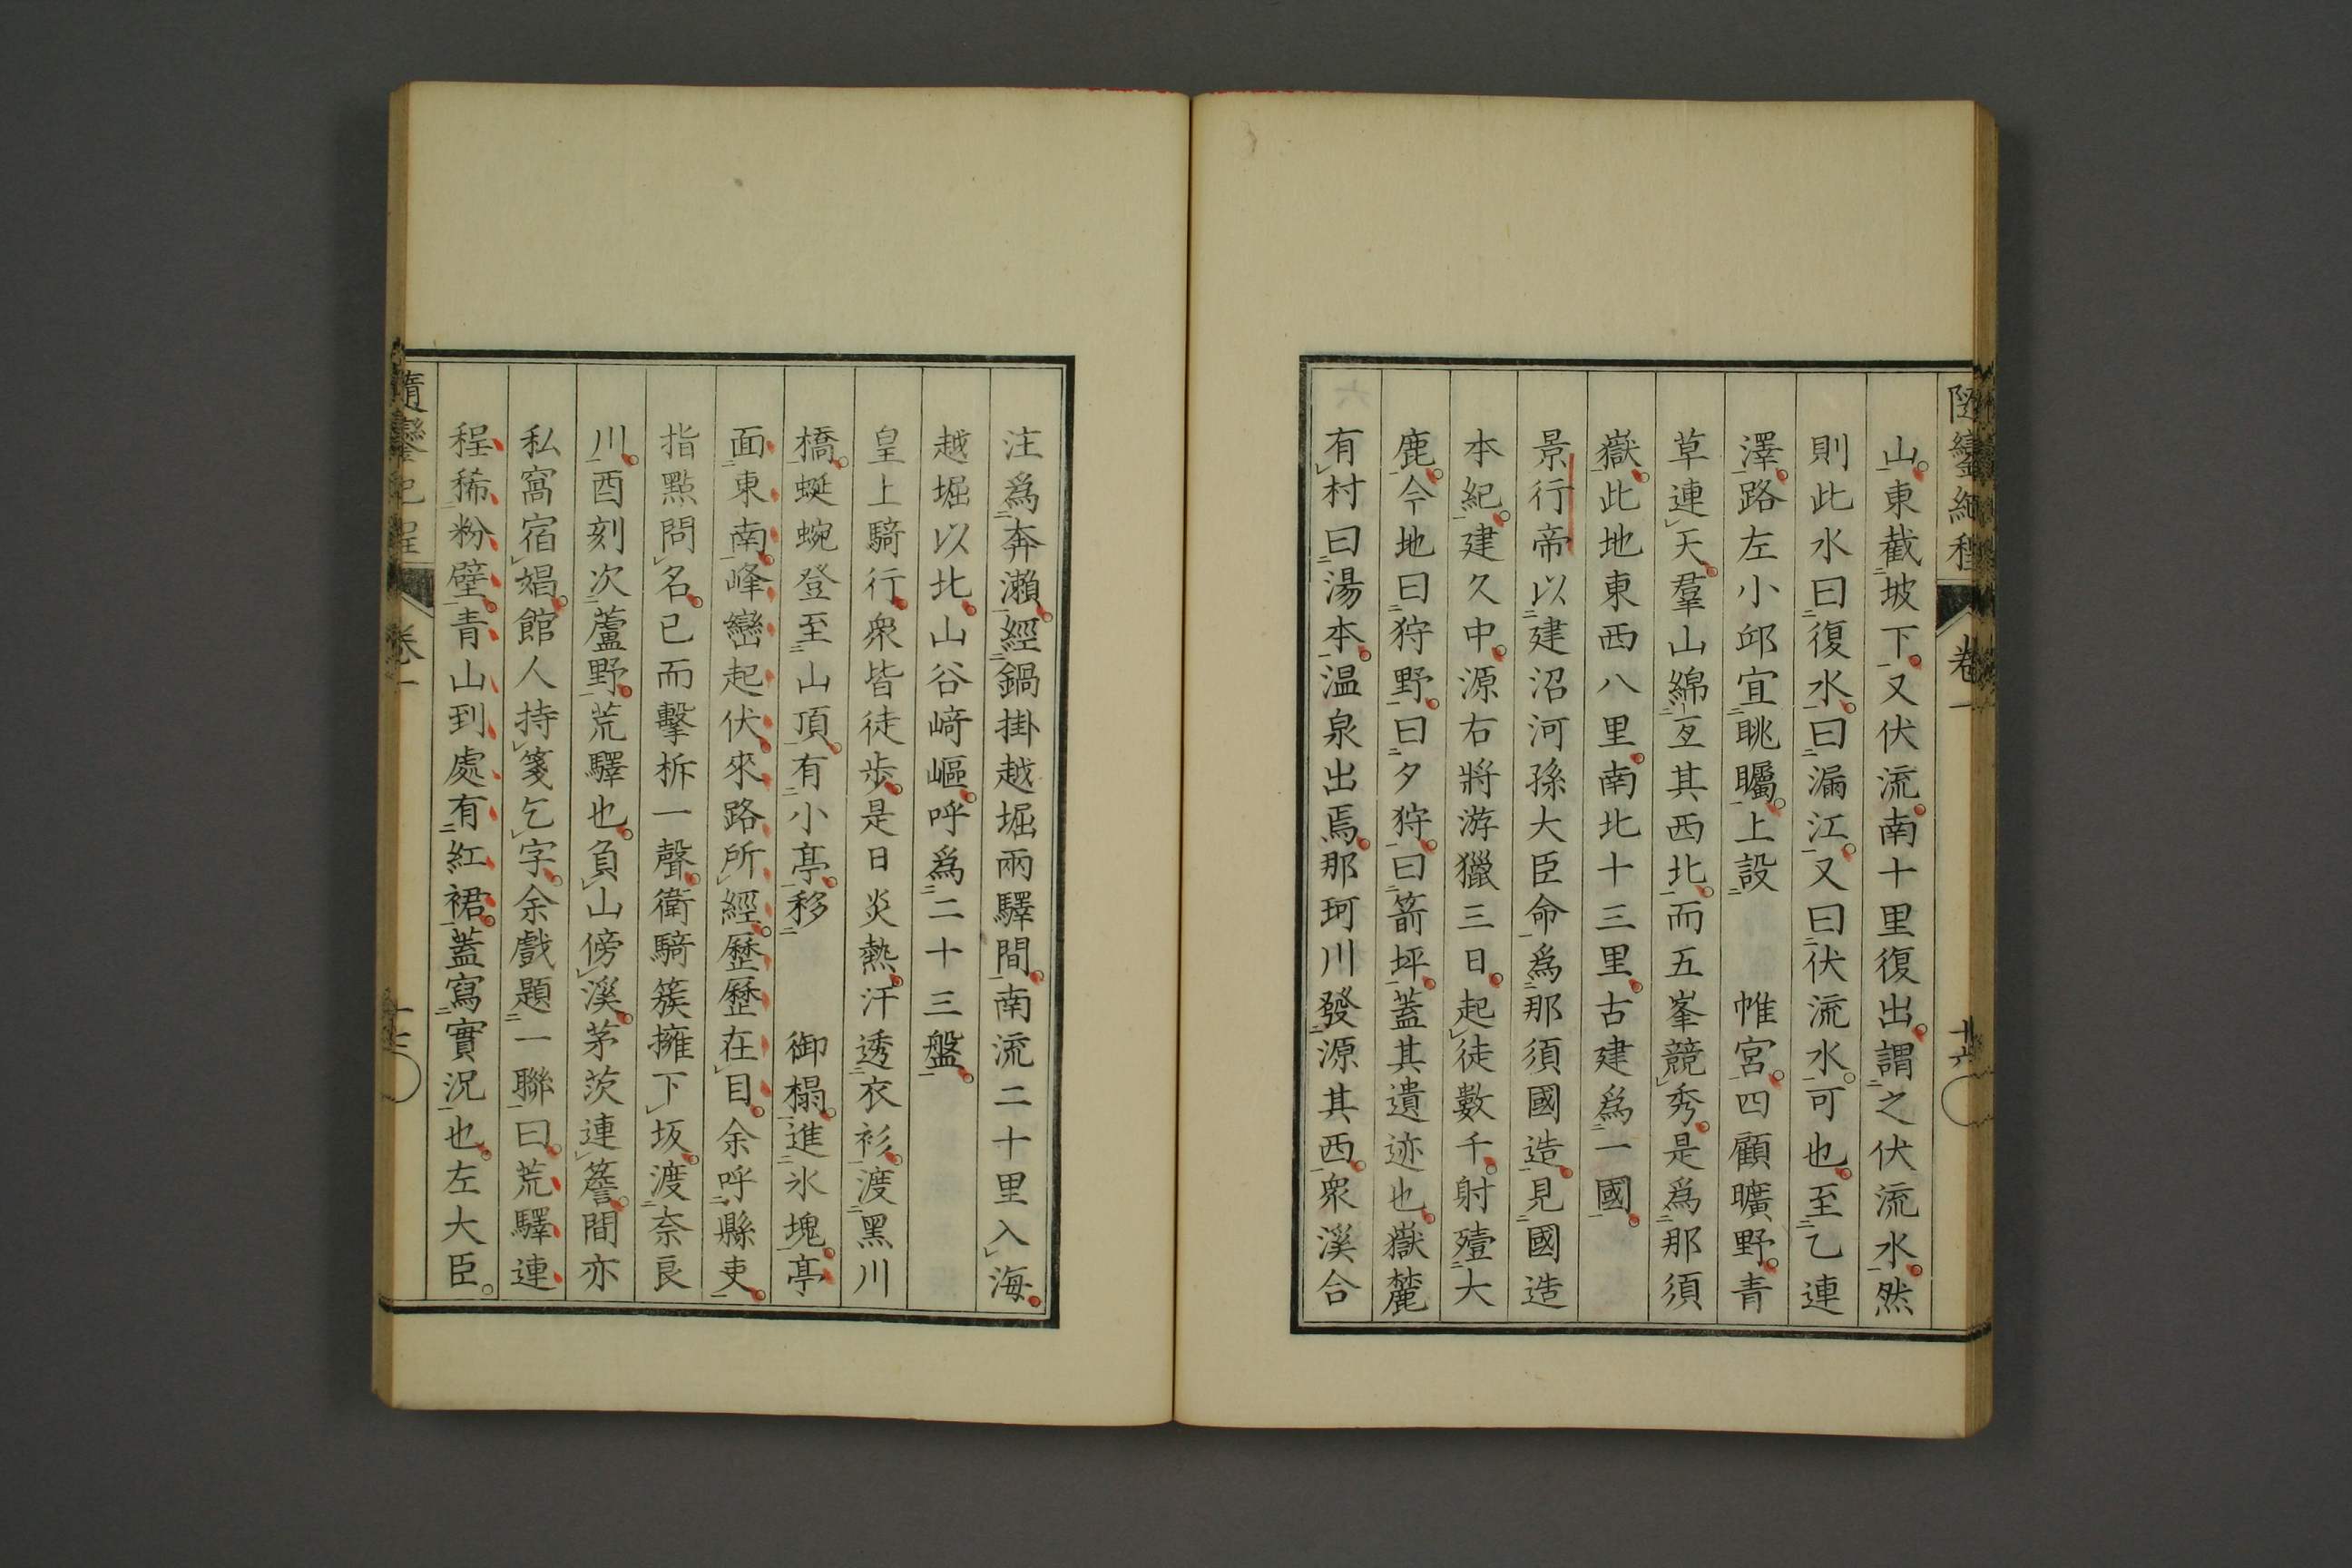 山東截坡下又伏流南十里復出謂之伏流水然
則此水曰復水曰漏江又曰伏流水可也至乙連
澤路左小邱宜眺矚上設　帷宮四顧曠野青
草連天羣山綿亙其西北而五峯競秀是爲那須
嶽此地東西八里南北十三里古建爲一國
景行帝以建沼河孫大臣命爲那須國造見國造
本紀建久中源右將游獵三日起徒數千射殪大
鹿今地曰狩野曰夕狩曰箭坪蓋其遺迹也嶽麓
有村曰湯本温泉出焉那珂川發源其西衆溪合
注爲奔瀨經鍋掛越堀兩驛間南流二十里入海
越堀以北山谷崎嶇呼爲二十三盤
皇上騎行衆皆徒步是日炎熱汗透衣衫渡黑川
橋蜒蜿登至山頂有小亭移　御榻進氷塊亭
面東南峰巒起伏來路所經歷歷在目余呼縣吏
指點問名已而擊柝一聲衛騎簇擁下坂渡奈良
川酉刻次蘆野荒驛也負山傍溪茅茨連簷間亦
私窩宿娼館人持箋乞字余戲題一聯曰荒驛連
程稀粉壁青山到處有紅裙蓋寫實況也左大臣
隨鑾紀程
卷一